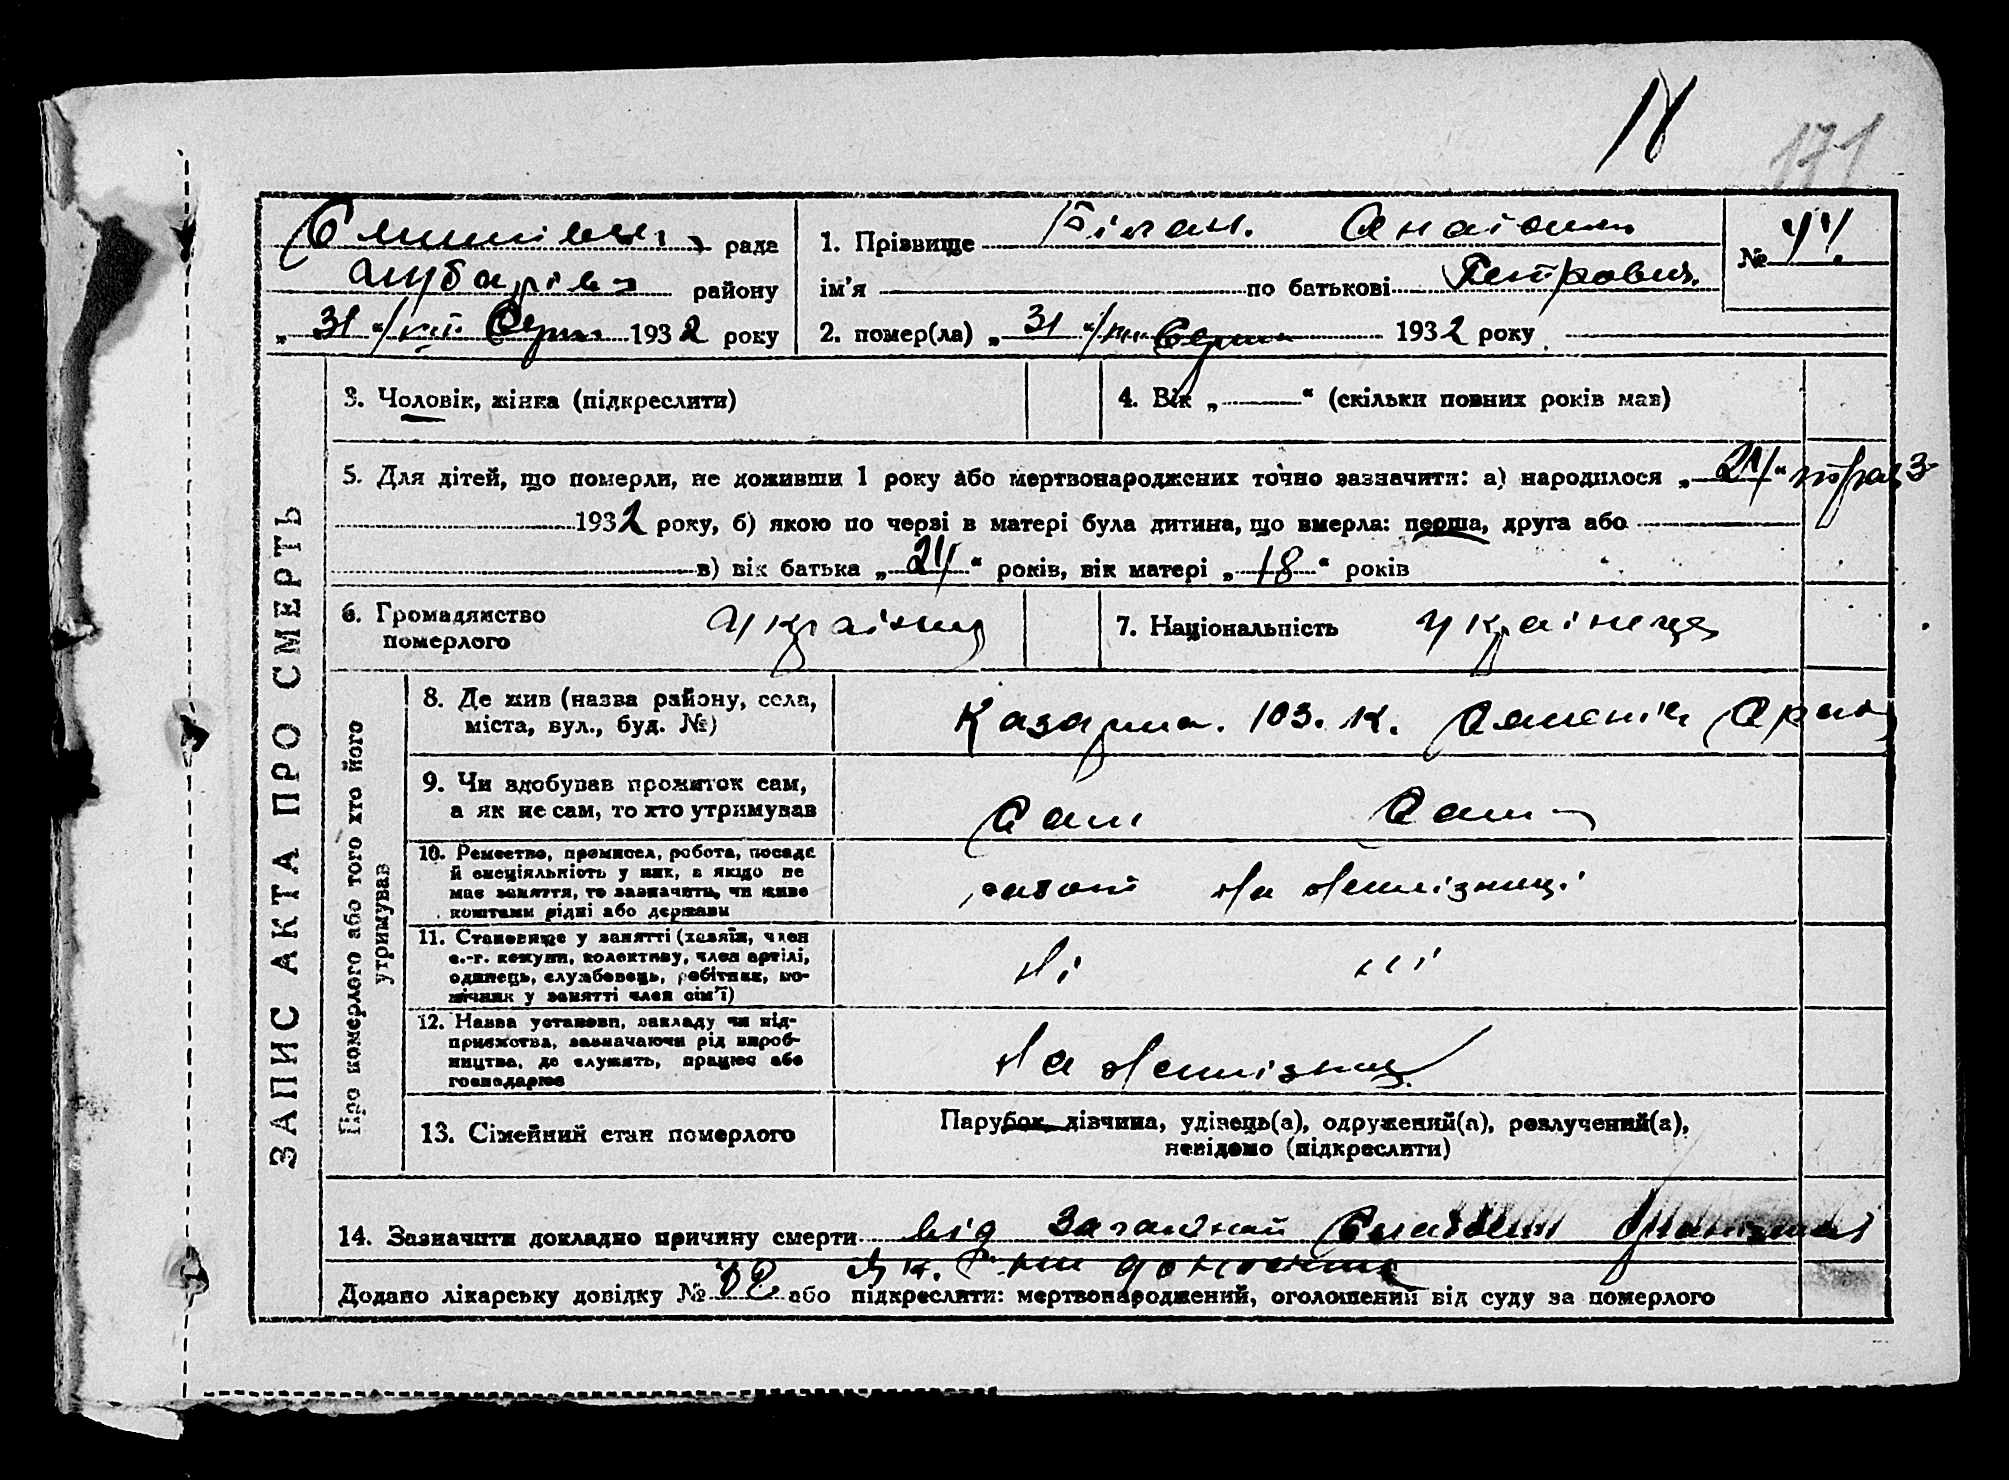 171
рада
1. Прізвище Білан. Анатоль
№ 44.
району
ім’я по батькові Петрович.
„ 31 “ Серпн 1932 року
2. помер(ла) „ 31 “ Серпн 1932 року
ЗАПИС АКТА ПРО СМЕРТЬ
3. Чоловік, жінка (підкреслити)
4. Вік „ “ (скільки повних років мав)
5. Для дітей, що померли, не доживши 1 року або мертвонароджених точно зазначити: а) народилося „ 24 “
1932 року, б) якою по черзі в матері була дитина, що вмерла: перша, друга або
в) вік батька „ 24 “ років, вік матері „ 18 “ років
6. Громадянство
померлого
7. Національність Українець
Про померлого або того хто його
утримував
8. Де жив (назва району, села,
міста, вул., буд. №)
Казарма. 103. к.
9. Чи здобував прожиток сам,
а як не сам, то хто утримував
Сам Сам
10. Ремество, промисел, робота, посада
й спеціяльність у них, а якщо не
має заняття, то зазначити, чи живе
коштами рідні або держави
на Залізниці
11. Становище у занятті (хазяїн, член
с.-г. комуни, колективу, член артілі,
одинець, службовець, робітник, по-
мічник у занятті член сім’ї)
Ні ні
12. Назва установи, закладу чи під-
приємства, зазначаючи рід вироб-
ництва, де служить, працює або
господарює
На Залізниц
13. Сімейний стан померлого
Парубок, дівчина, удівець(а), одружений(а), розлучений(а),
невідомо (підкреслити)
14. Зазначити докладно причину смерти від Загальной
Додано лікарську довідку № або підкреслити: мертвонароджений, оголошений від суду за померлого